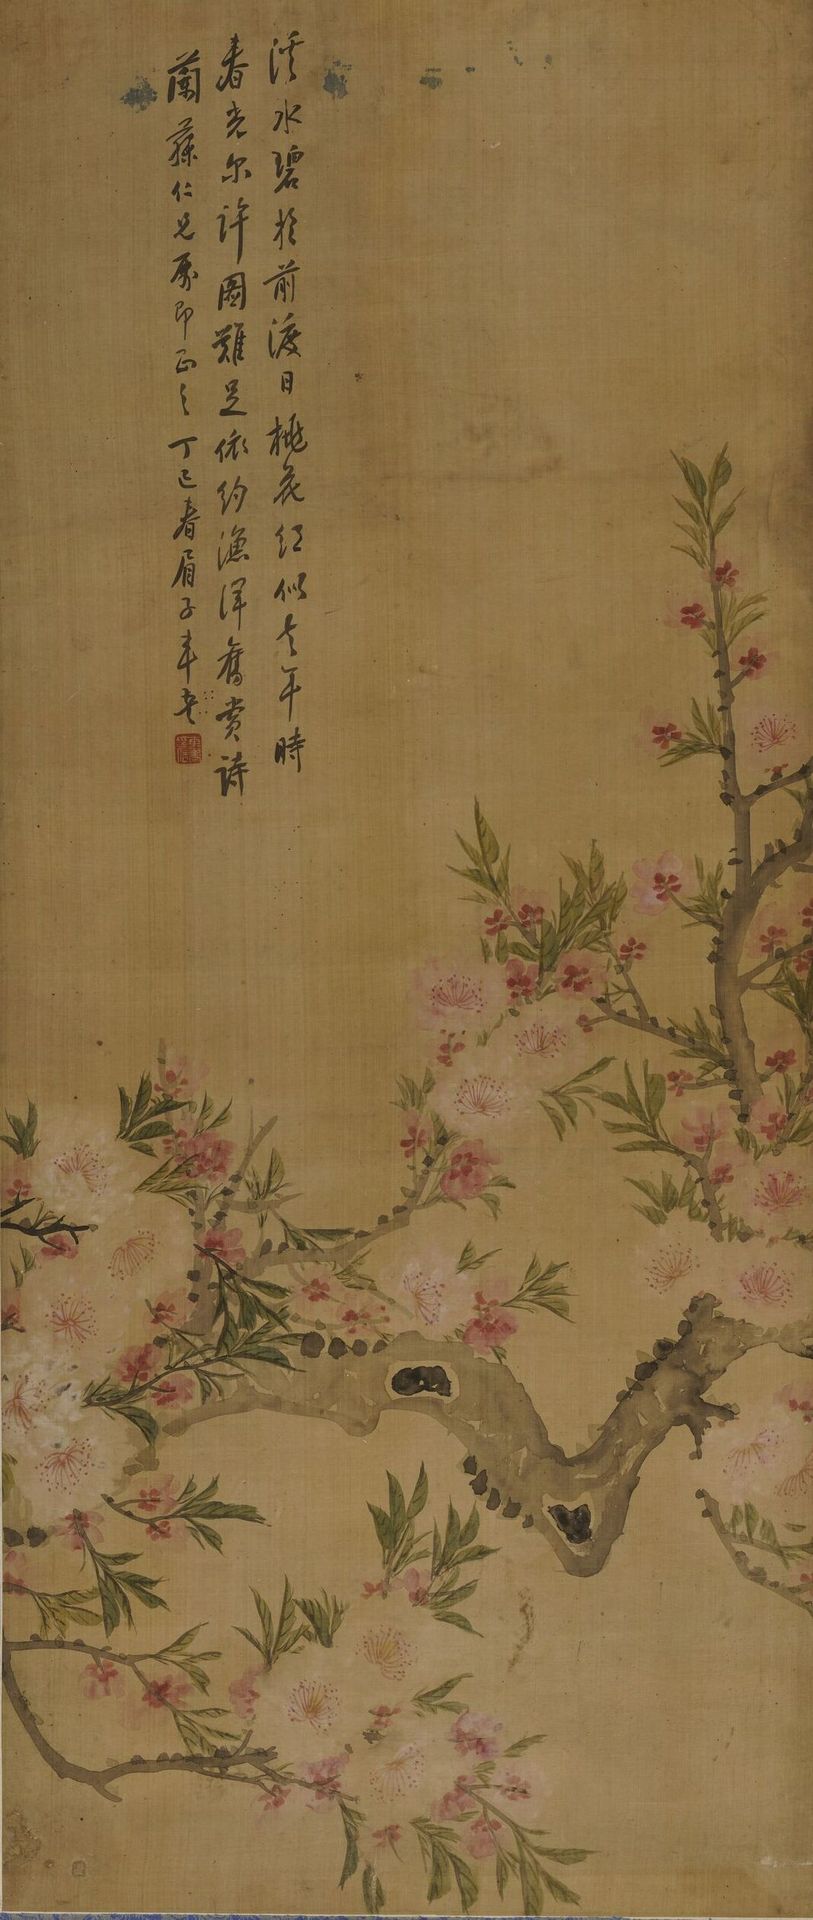 溪水碧於前渡日桃花紅似去年時
春光尔許圖難足依約漁洋舊賞詩
蘭蓀仁兄屬即正之丁巳春眉子年